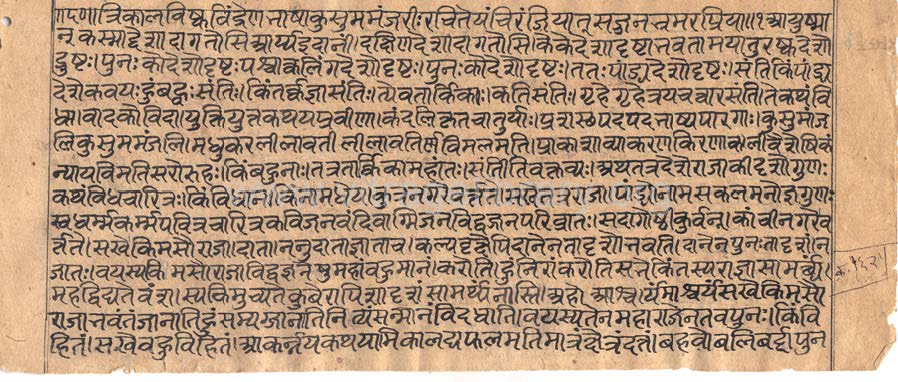 ॥पाणात्रिकालविष्कविंद्रेणनाषाकुसुममंजरीःरचितेयंचिरंजियात्सजुनभ्रमरप्रिया॥१आयुष्मा
न्कस्माद्देशादागतोसिआर्य्यइदानीं।दक्षिणदेशादागतोसि।केकेदेशादृष्टानवतामयातुरष्कदेशो
दृष्टः।पुनःकोदेशोदृष्टःपश्चात्कलिंगदेशोदृष्टः।पुनःकोदेशोदृष्टः।ततःपांड्यदेशोदृष्टः।संतिकिंपांड्य
देशेकवयःद्रुंबद्वःसंतिः।किंतर्कज्ञासंतिः।त्येवतार्किकाः।कतिसंतिः।गृहेगृहेत्रयचत्वारसंति।तेकथंवि
धावादकोविदा।युक्तियुक्तकथयप्रवीणा।कंदलिकृतचातुर्याः।प्रशस्तपदपदभाष्यपारगाः।कुसुमांज
लिकुसुममंजलि।मधुकरलीलावतीलीलावतिर्णविमलमति।प्राकाशाव्याकरणकिरणाकलीवैशेषिकं
न्यायविमतिसरोरुहः।किंबहुनाः।तत्रतार्किकामहांतः।संतीतिवक्तव्यः।अथतत्रदेशेराजाकीदृशोगुणः
कथंविधचारित्रः।किंविधानो।किंनामधेयो
राजापांड्योनामसकलमनोज्ञगुणः
स्वधर्म्मकर्म्मपवित्रचारित्रकविजनवंदिवाग्मिजनविद्वज्जनपरिवृतः।सदागोष्ठींकुर्वन्।कांचीनगरेव
र्त्तते।सखेकिमसौराजा।दाता।ननुदाताज्ञाताच।कल्पवृक्षेपिदातेनतादृशोनवति।दाननपुनःतादृशोन
जातः।वयस्यकिमसौराजाविद्वज्जनेषुमहांबहुमानं।करोति।द्रुंनिरांकरोतिसखेकिंतस्यराज्ञासामर्थ्यं।
महद्विद्यतेवंशस्यकिमुच्यतेकुबेरापिशदृशंसामर्थ्यंनास्ति।अहोआश्चर्यंमाश्चर्यंसखेकिमसौ
राजानवंतंजानातिद्रुंसम्यग्जानातिनित्यंसन्मानंविदधाति।वयस्यतेनमहाराजेनतवपुनः।किंवि
हितं।सखेबहुविहितं।आकर्न्नयकथयामिकालद्यफलमतिमात्रंक्षेत्रंदत्तं।बहवोबलिवर्द्दापुन